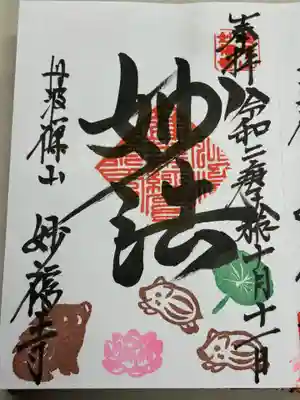 奉拝 令和二 月十一日
妙法
丹波篠山 妙福寺